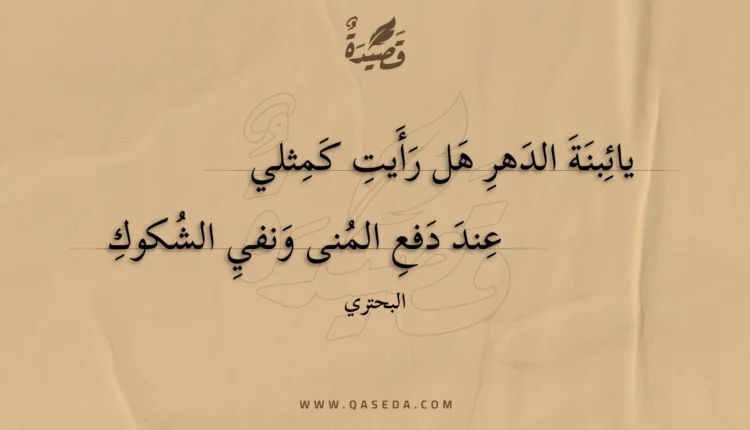 قَصِيدَةٌ
يائِبنَةَ الدَهرِ هَل رَأَيتِ كَمِثلي
عِندَ دَفعِ المُنى وَنَفيِ الشُكوكِ
البحتري
WWW.QASEDA.COM